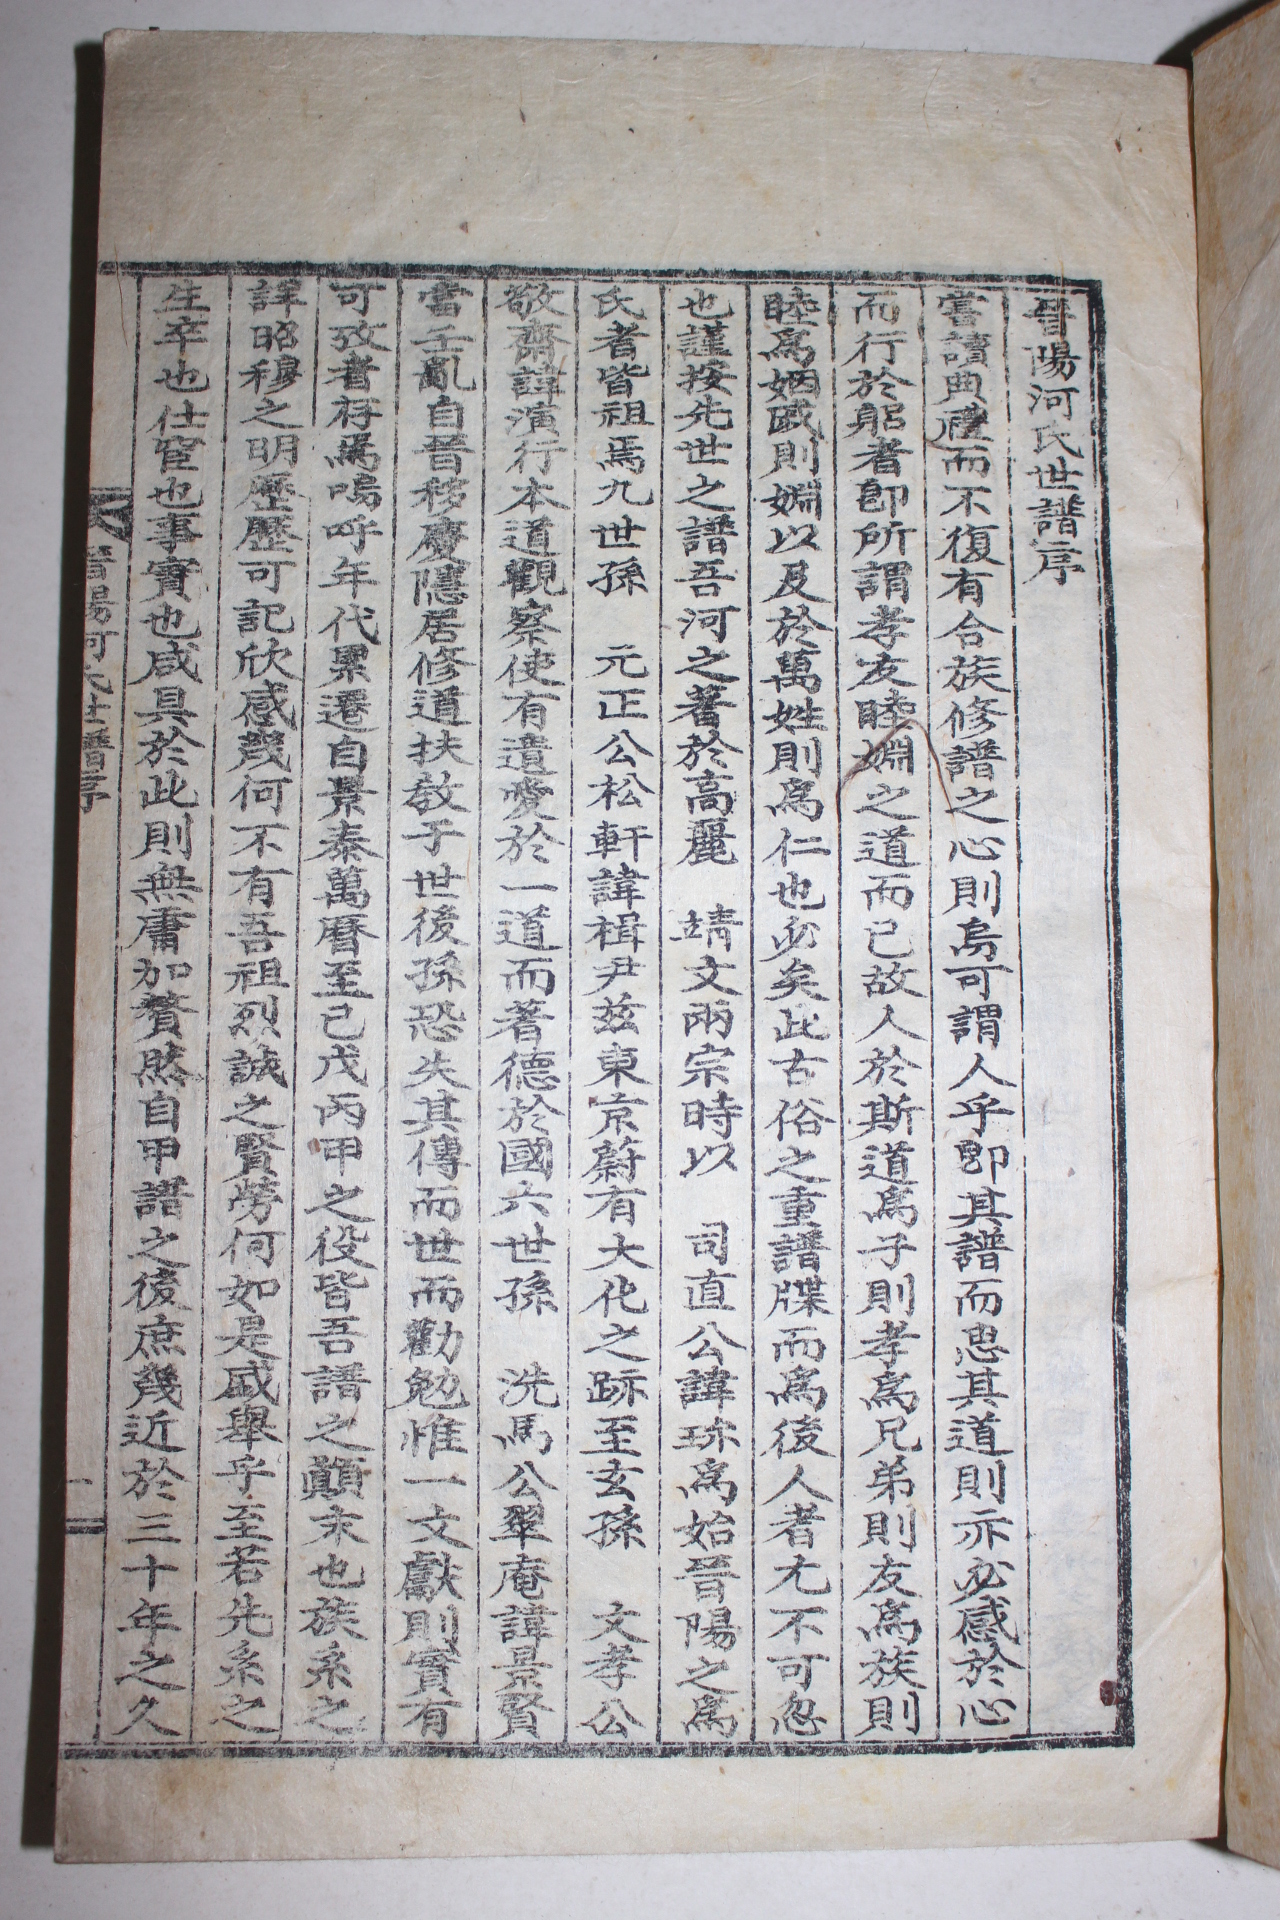 晉陽河氏世譜序
嘗讀典禮而不復有合族修譜之心則烏可謂人乎卽其譜而思其道則亦必感於心
而行於躬者卽所謂孝友睦婣之道而已故人於斯道爲子則孝爲兄弟則友爲族則
睦爲姻戚則婣以及於萬姓則爲仁也必矣此古俗之重譜牒而爲後人者尤不可忽
也謹按先世之譜吾河之著於高麗 靖文兩宗時以 司直公諱珎爲始晉陽之爲
氏者皆祖焉九世孫 元正公松軒諱楫尹玆東京蔚有大化之跡至玄孫 文孝公
敬齋諱演行本道觀察使有遺愛於一道而著德於國六世孫 洗馬公翠庵諱景賢
當壬亂自晉移慶隱居修道扶敎于世後孫恐失其傳而世而勸勉惟一文獻則實有
可攷者存焉嗚呼年代累遷自景泰萬曆至己戊丙甲之役皆吾譜之顚末也族系之
詳昭穆之明歷歷可記欣感幾何不有吾祖烈誠之賢勞何如是盛擧乎至若先系之
生卒也仕宦也事實也咸具於此則無庸加贅然自甲譜之後庶幾近於三十年之久
晉陽河氏世譜序
一